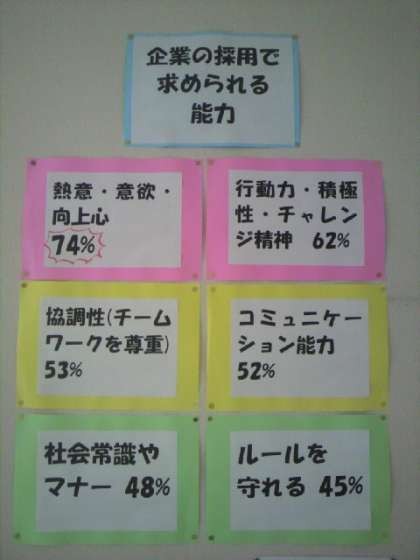 企業の採用で
求められる
能力
熱意・意欲・
向上心
74%
行動力・積極
性・チャレン
ジ精神 62%
協調性(チーム
ワークを尊重)
53%
コミュニケー
ション能力
52%
社会常識や
マナー 48%
ルールを
守れる 45%